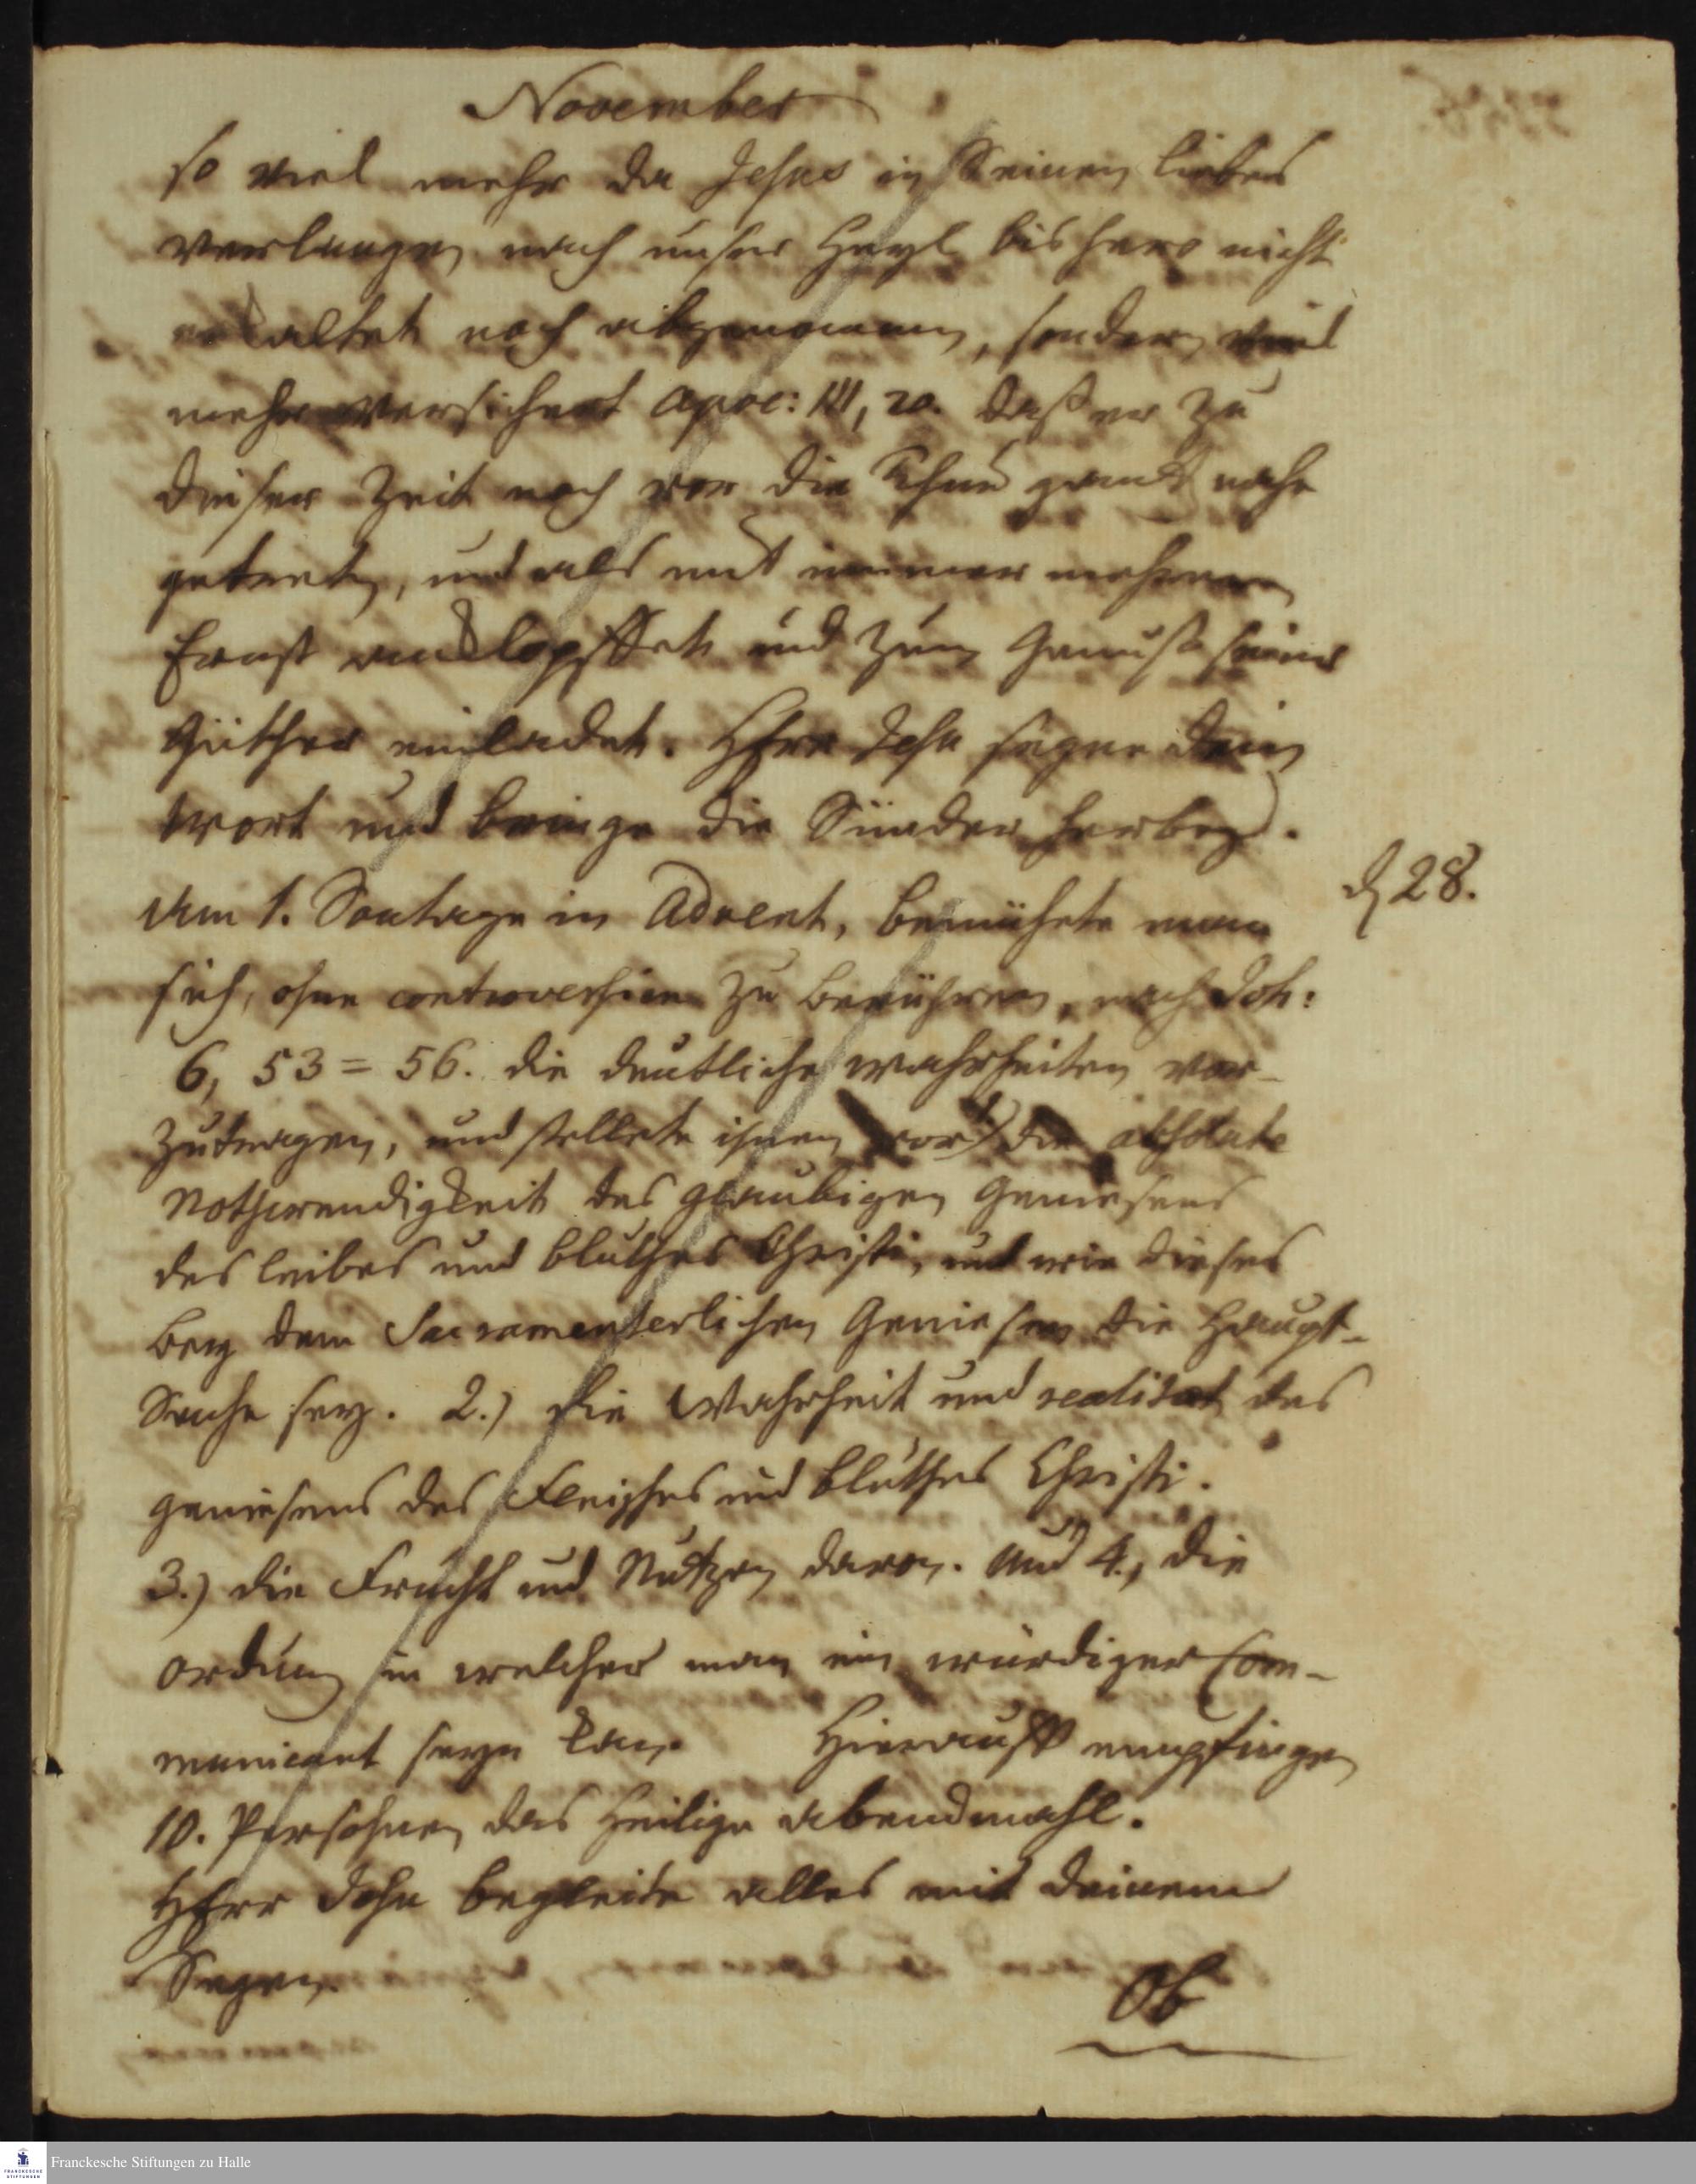 November
so viel mehr da Jesus in Seinen liebes
verlangen nach unser Heyl bishero nicht
erkaltet noch abgenommen, sondern viel
mehr versichert Apoc: III, 20. daß er zu
dieser Zeit noch vor die Thür gantz nahe
getreten, und als mit immer mehrern
Ernst anklopffet und zum Genuß seiner
Güther einladet. HErr Jesu segne dein
Wort und bringe die Sünder herbey.
Am 1. Sontage in Advent, bemühete man
d 28.
sich, ohne controversien zu berühren, nach Joh:
6, 53=56. die deutliche Wahrheiten vor-
zutragen, und stellete ihnen vor die absolute
Nothwendigkeit des glaubigen Geniesens
des leibes und bluthes Christi, und wie dieses
bey dem Sacramenterlichen Geniesen die Haupt-
Sache sey. 2.) die Wahrheit und realitæt des
geniesens des Fleisches und bluthes Christi.
3.) die Frucht und Nutzen davon. Und 4., die
Ordnung in welcher man ein würdiger Com-
municant seyn kan. Hierauff empfingen
10. Persohnen das Heilige Abendmahl.
HErr Jesu begleite alles mit deinem
Segen.
Ob
Franckesche Stiftungen zu Halle